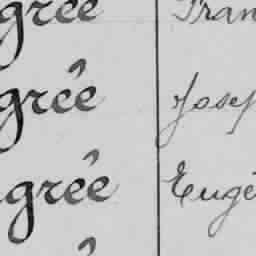 grée Fran
grée Josep
grée Eugé